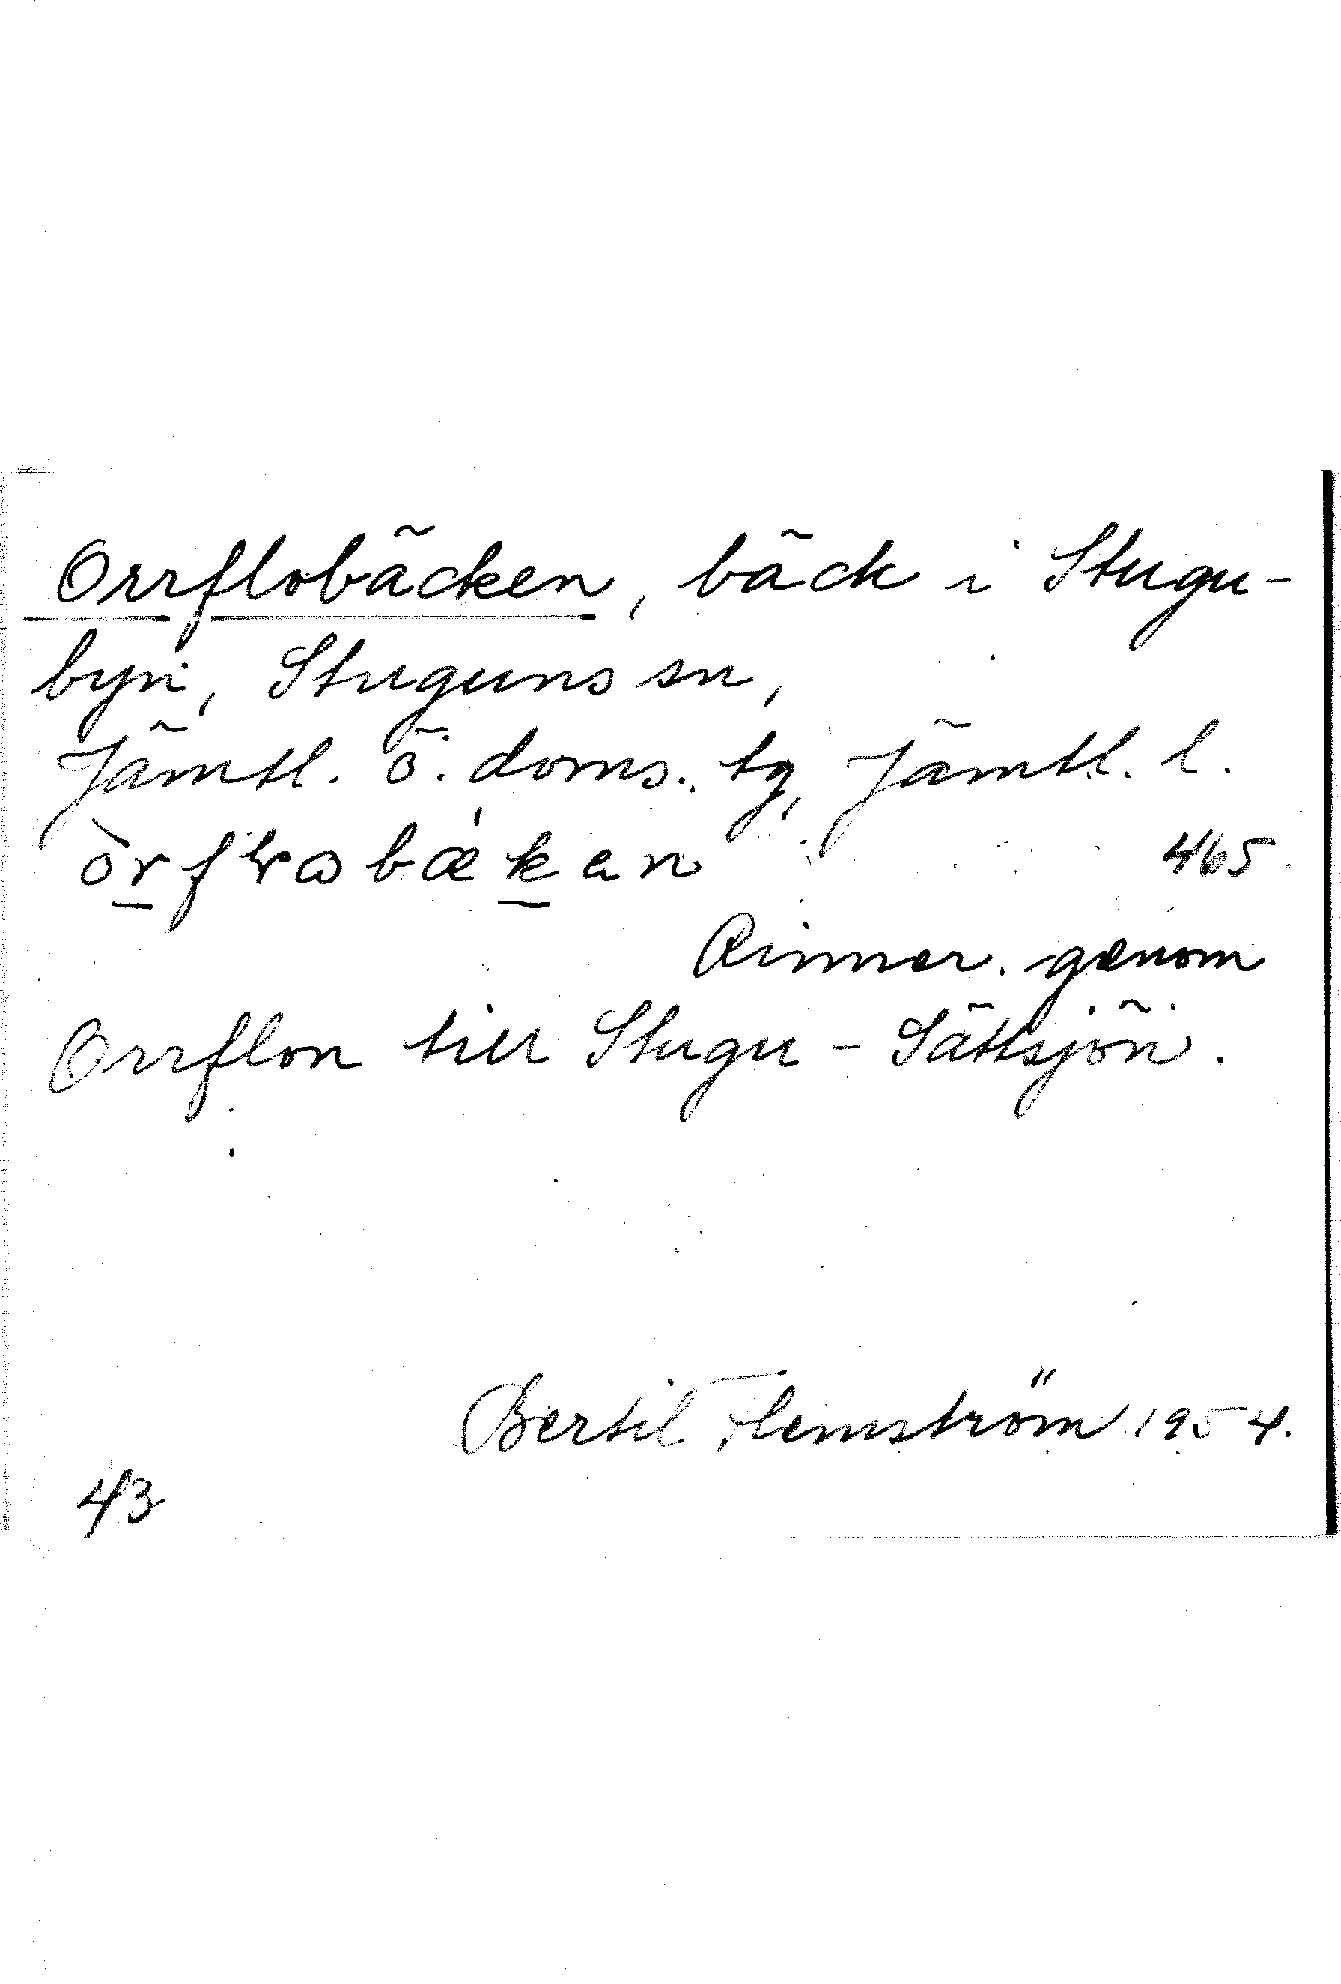 Orrflobäcken, bäck i Stugu-
byn, Stuguns sn,
Jämtl. ö. doms. tg, Jämtl. l.
465
Rinner genom
Orrflon till Stugu-Sättsjön.
Bertil Flemström 1954.
43